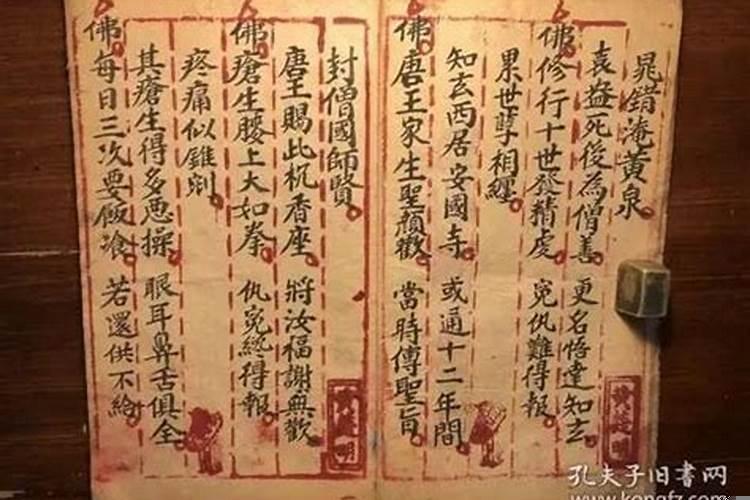 晁錯淹黃泉
袁益死後為僧善 更名悟達知玄
佛修行十世發精虔 冤仇難得報
累世孽相纏
知玄西居安國寺 或通十二年間
佛唐王家生聖顏歡 當時傳聖旨
封僧國師賢
唐王賜此杌香座 將汝福謝無歡
佛瘡生腰上大如拳 仇冤終得報
疼痛似錐剜
其瘡生得多恶操 眼耳鼻舌俱全
佛每日三次要飯飡 若還供不給
孔夫子旧书网